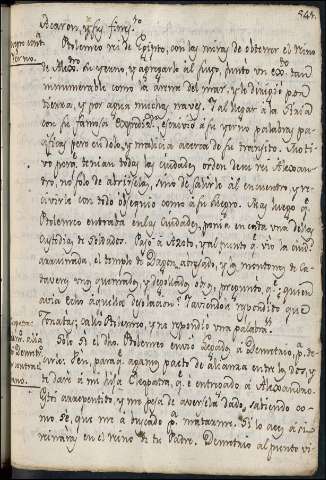 344.
Ptolemeo rei de Egipto, con las miras de obtener el reino
de Alexro. su yerno, y agregarlo al suyo, juntó un exto. tan
innumerable como la arena del mar, y le dirigió por
tierra, y por agua muchas naves. Y al llegar à la
con su famosa envió à su yerno palabras pa-
cificas pero en dolo, y malicia acerca de su transito. Moti-
vo porq. tenian todas las ciudades orden de su rei Alexan-
dro, no solo de abrirselas, sino de salirle al encuentro, y re-
civirle con todo obsequio como à su suegro. Mas luego q.
Ptolemeo entrava en las Ciudades, ponia en cada una de ellas
custodia de soldados. Pasó à Azoto, y al punto q. vio la ciud.
arruinada, el templo de Dagon, y los montones de Ca-
daveres, no quemados, y preguntó q. quien
avia echo aquella desolacion? y respondido que
Jonatas; calló Ptolemeo, y no respondio una palabra.
Ptolemeo envió Legados à Demetrio, p. de-
cirle: Ven, para q. agamos pacto de alianza entre los dos, y
te daré à mi hija Cleopatra, q. è entregado à Alexandro.
Estoi arrepentido, y me pesa de aversela dado, sabiendo co-
mo sé, que me à buscado pa. matarme. Si lo aces asi
reinarás en el reino de tu Padre. Demetrio al punto vi-